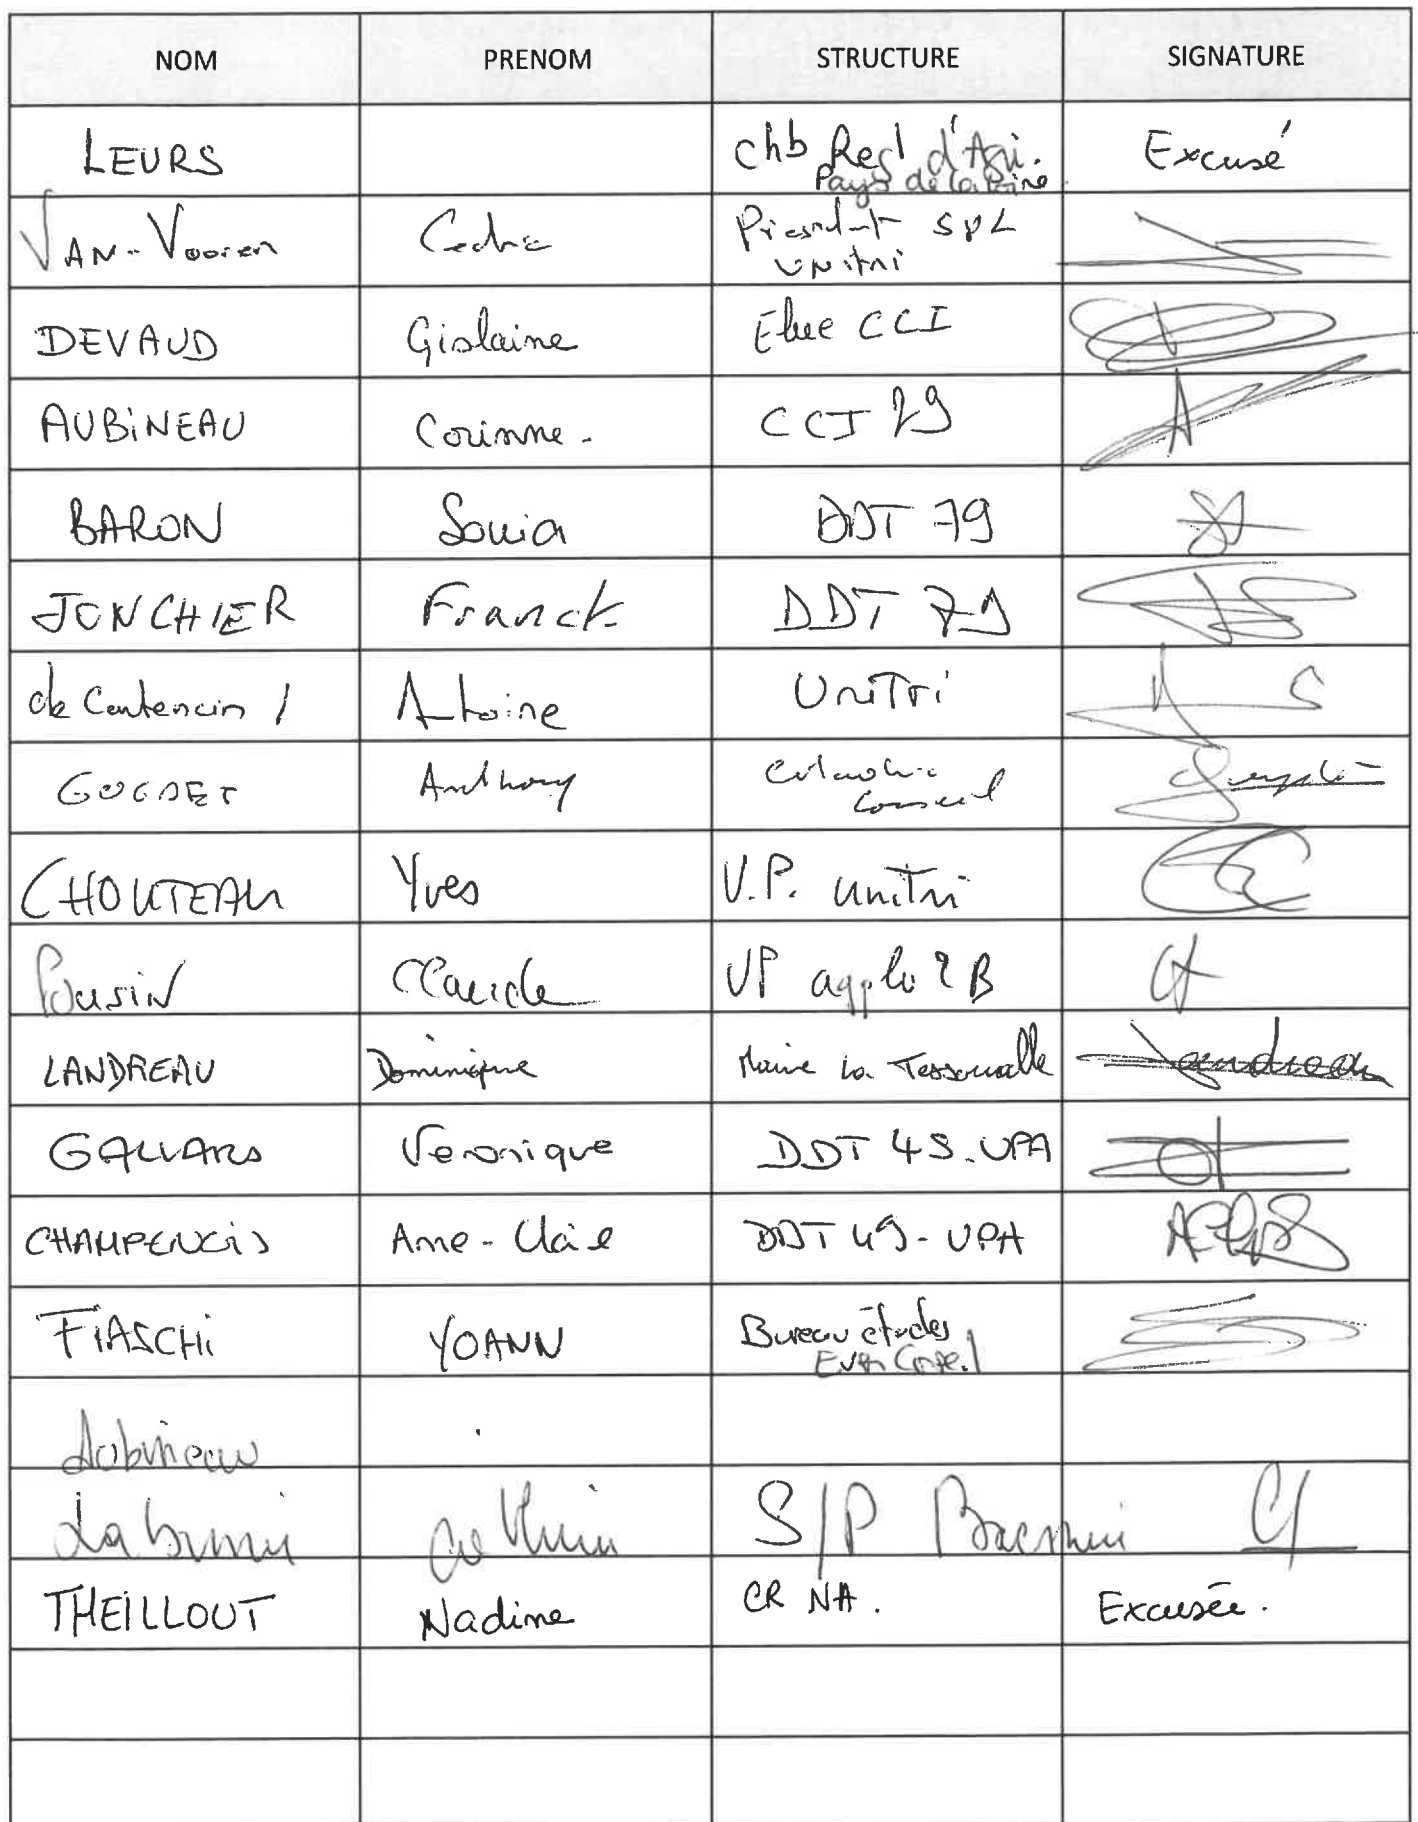 NOM PRENOM STRUCTURE SIGNATURE
LEURS Chb Regl d'Agri. Excusé
Pays de la Loire
VAN-Vooren Cedric Président SPL
Unitri
DEVAUD Gislaine Elue CCI
AUBINEAU Corinne. CCI 79
BARON Sonia DDT 79
JONCHIER Franck DDT 79
de Contencin / Antoine UniTri
Anthony
Conseil
CHOUTEAU Yves V.P. UniTri
Pousin Claude VP agglo 2B
LANDREAU Dominique Maire La Tessoualle Landreau
Veronique DDT 49-UPA
CHAMPENOIS Anne-Claire DDT 49-UPA
FIASCHI YOANN Bureau études
Even Conseil
Aubineau
S/P
THEILLOUT Nadine CR NA. Excusée.